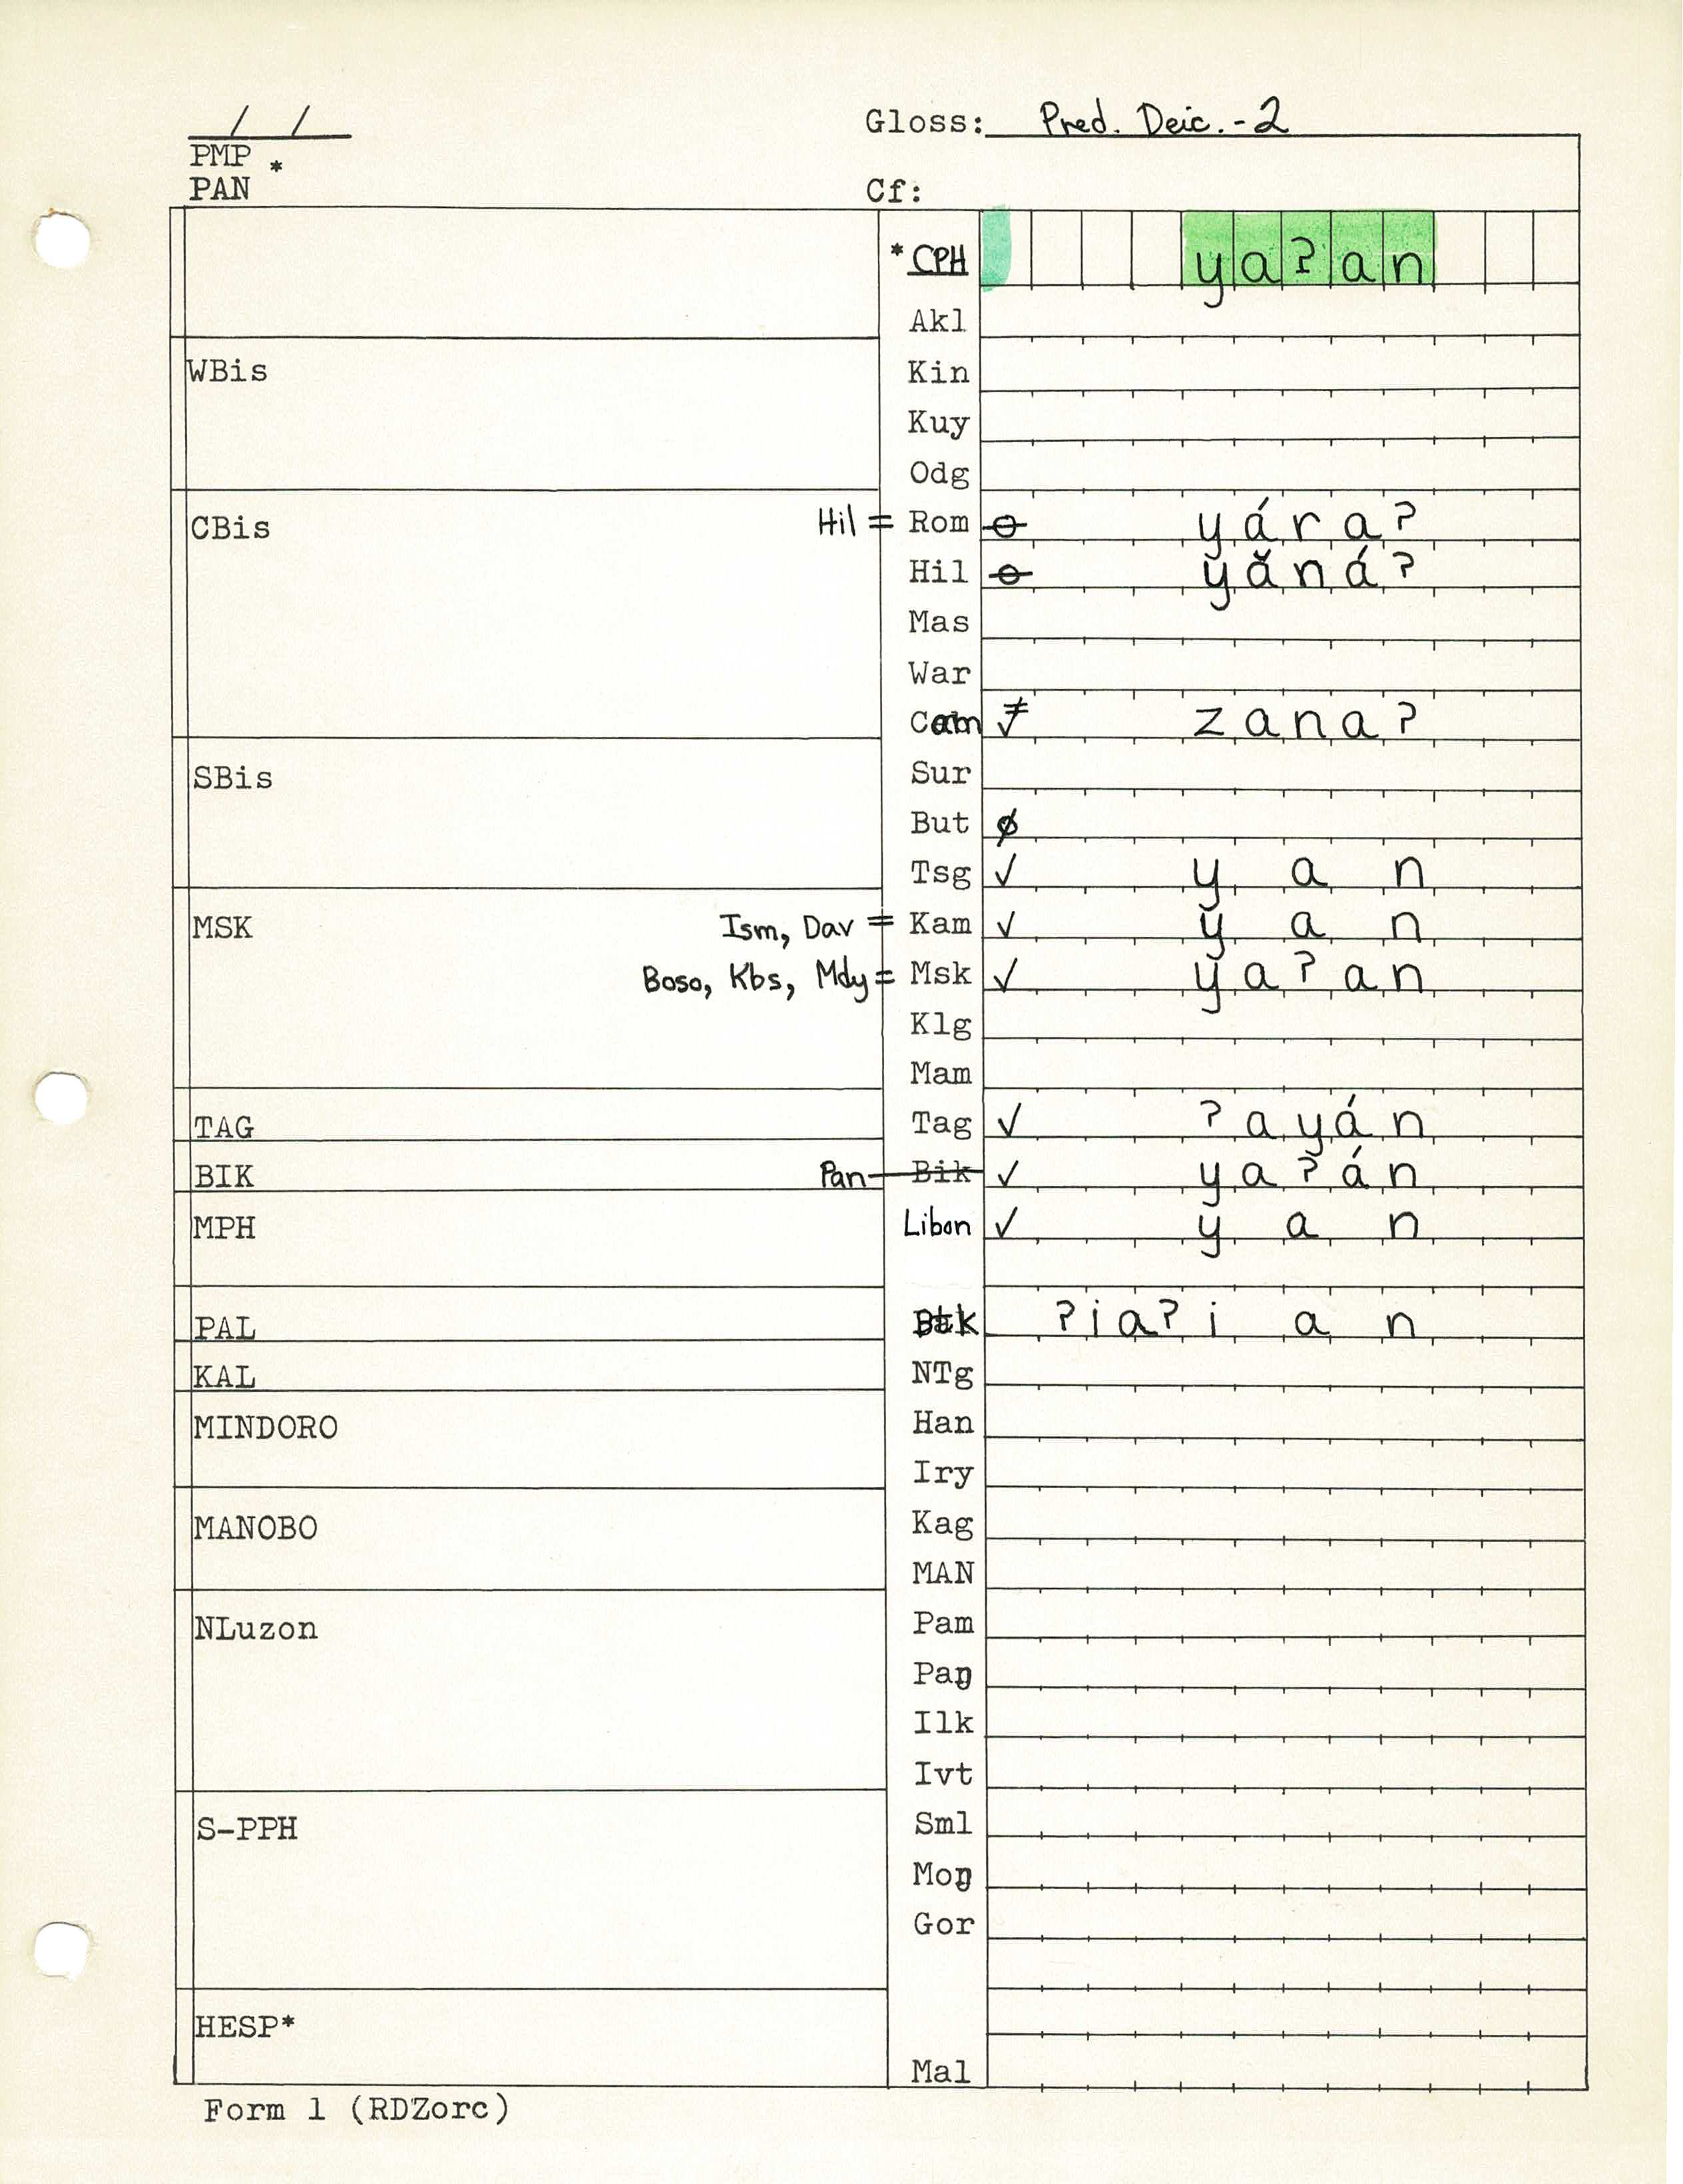 / /
Gloss: Pred. Deic. -2
PMP *
PAN
Cf:
*CPH yaʔan
Akl
WBis Kin
Kuy
Odg
CBis Hil = Rom ⊖ yáraʔ
Hil ⊖ yănáʔ
Mas
War
Cam ✓ zanaʔ
SBis Sur
But ø
Tsg ✓ y a n
MSK Ism, Dav = Kam ✓ y a n
Boso, Kbs, Mdy = Msk ✓ yaʔan
Klg
Mam
TAG Tag ✓ ʔayán
BIK Pan Bik ✓ yaʔán
MPH Libon ✓ y a n
PAL Btk ʔiaʔi a n
KAL NTg
MINDORO Han
Iry
MANOBO Kag
MAN
NLuzon Pam
Paŋ
Ilk
Ivt
S-PPH Sml
Moŋ
Gor
HESP*
Mal
Form 1 (RDZorc)